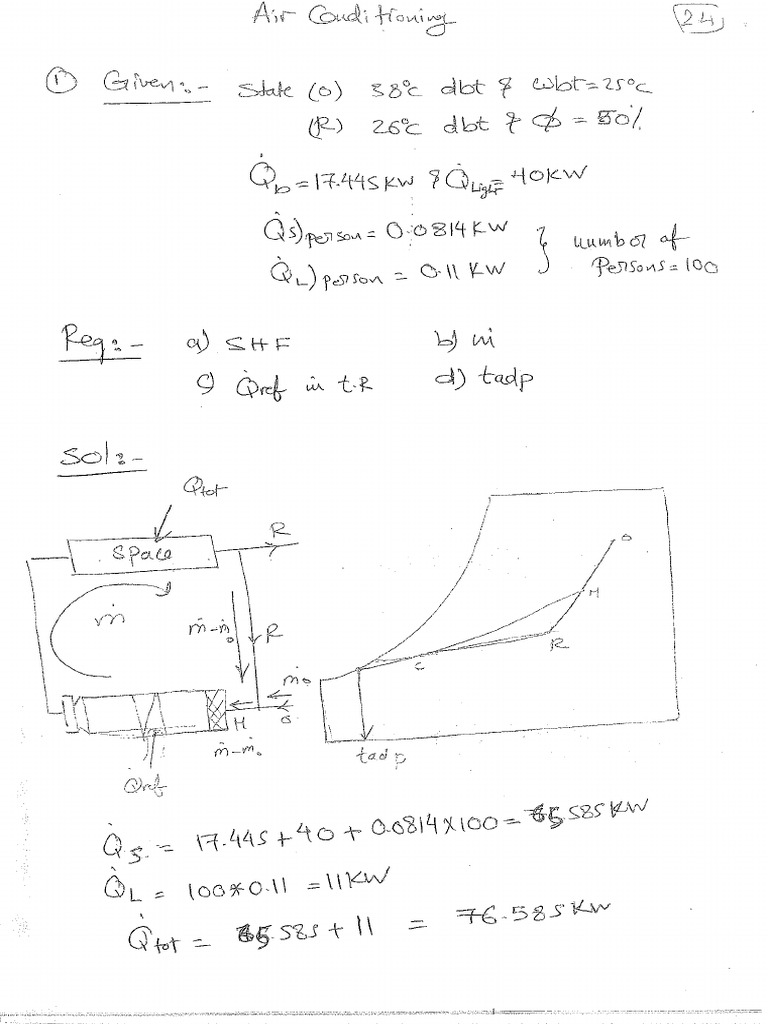 Air Conditioning
24
① Given:- State (O) 38°c dbt & wbt=25°c
(R) 26°c dbt & Φ = 50%
Q̇b = 17.445 KW & Q̇Light = 40KW
Q̇s)person = 0.0814 KW
Q̇L)person = 0.11 KW
number of
Persons = 100
Req:- a) SHF b) ṁ
c) Q̇ref in t.R d) tadp
Sol:-
Qtot
R
Space
ṁ
ṁ-ṁo
R
ṁo
H
O
ṁ-ṁo
Q̇ref
O
H
R
C
tadp
Q̇s = 17.445 + 40 + 0.0814 x 100 = 65.585 KW
Q̇L = 100*0.11 = 11KW
Q̇tot = 65.585 + 11 = 76.585 KW